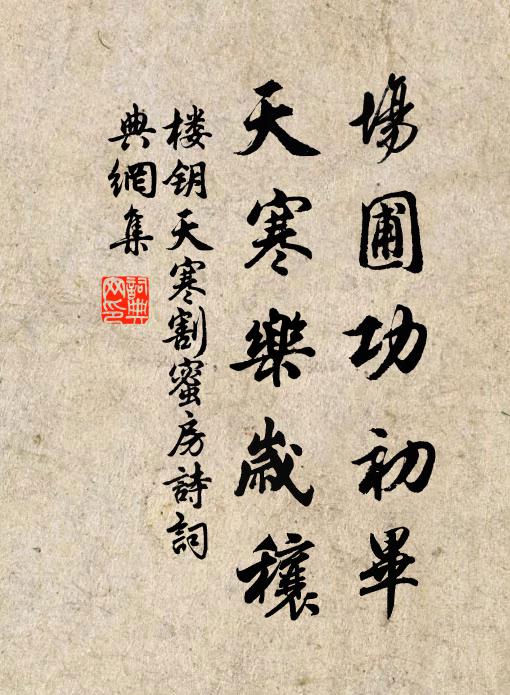 場圃功初畢
天寒樂歲穰
楼钥天寒割蜜房詩詞
典網集
詞典网印